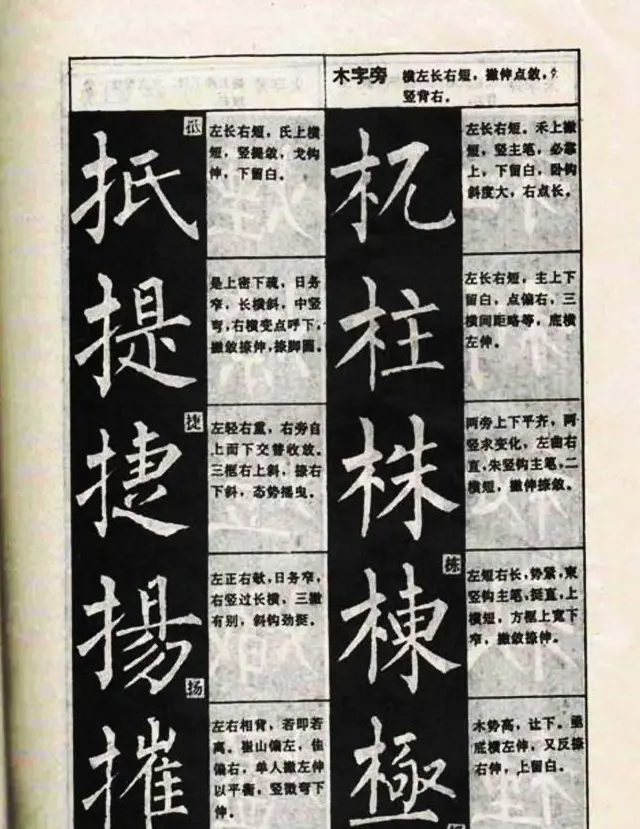 抵
抵
左长右短，氏上横
短，竖提敛，戈钩
伸，下留白。
提
是上密下疏，日务
窄，长横斜，中竖
弯，右横变点呼下，
撇敛捺伸，捺脚圆。
捷
捷
左轻右重，右旁自
上而下交替收放。
三框右上斜，捺右
下斜，态势摇曳。
揚
扬
左正右欹，日务窄，
右竖过长横，三撇
有别，斜钩劲挺。
摧
左右相背，若即若
离。崔山偏左，隹
偏右，单人撇左伸
以平衡，竖微弯下
伸。
木字旁
横左长右短，撇伸点敛，
竖背右。
左长右短。禾上撇
短，竖主笔，必靠
上，下留白，卧钩
斜度大，右点长。
柱
左长右短，主上下
留白，点偏右，三
横间距略等，底横
左伸。
株
两旁上下平齐，两
竖求变化，左曲右
直，朱竖钩主笔，二
横短，撇伸捺敛。
棟
栋
左短右长，势紧，東
竖钩主笔，挺直，上
横短，方框上宽下
窄，撇敛捺伸。
極
木势高，让下。亟
底横左伸，又反捺
右伸，上留白。